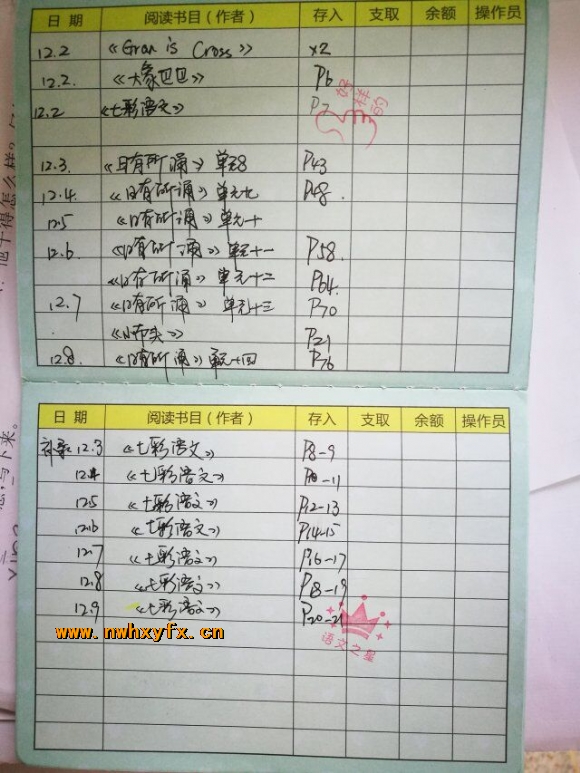 日 期 阅读书目(作者) 存入 支取 余额 操作员
12.2 《Gran is Cross》 x2
12.2. 《大象巴巴》 P6
12.2 《七彩语文》 P7
好样的
12.3. 《日有所诵》单元8 P43
12.4. 《日有所诵》单元九 P48.
12.5 《日有所诵》单元十
12.6. 《日有所诵》单元十一 P58.
《日有所诵》单元十二 P64.
12.7 《日有所诵》单元十三 P70
《小布头》 P21
12.8. 《日有所诵》单元十四 P76
日 期 阅读书目(作者) 存入 支取 余额 操作员
补录: 12.3 《七彩语文》 P8-9
12.4 《七彩语文》 P10-11
12.5 《七彩语文》 P12-13
12.6 《七彩语文》 P14-15
12.7 《七彩语文》 P16-17
12.8 《七彩语文》 P18-19
12.9 《七彩语文》 P20-21
www.nwhxyfx.cn
语文之星